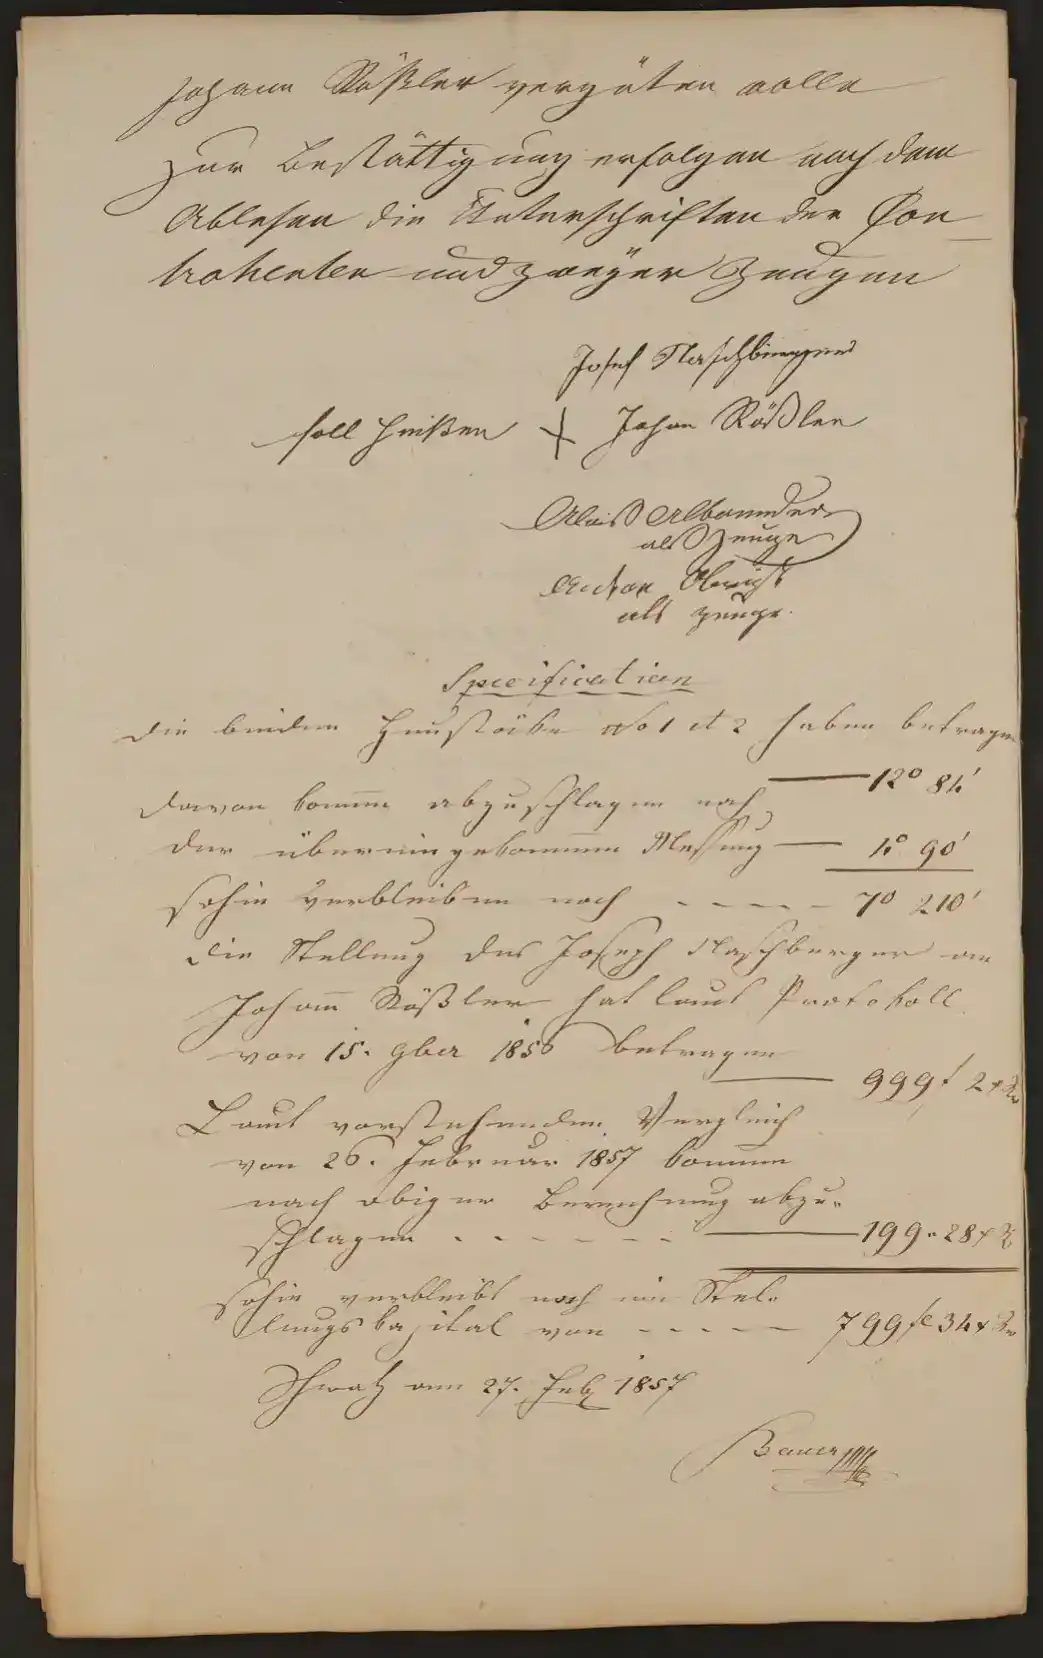 Johann Rößler vergüten wolle
Zur Bestättigung erfolgen nach dem
Ablesen die Unterschriften der Con
trahenten und zweyer Zeugen
Josef Naschberger
soll heißen + Johan Rößler
Alois
als Zeuge
Anton Obrist
als Zeuge.
Specification
Die beiden Heustöcke No 1 et 2 haben betragen
12° 84'
Davon komm̅ abzuschlagen nach
der übereingekommenen Messung — 4° 90'
sohin verbleiben noch - - - - - 7° 210'
Die Stellung des Joseph Naschberger an
Johann̅ Rößler hat laut Protokoll
von 15. 9ber 1856 betragen
999 f 2 x
Laut vorstehenden Vergleich
von 26. Februar 1857 kommen
nach obiger Berechnung abzu-
schlagen - - - - - - 199 " 28 x
sohin verbleibt noch ein Stel-
lungskapital von - - - - - 799 f 34 x
Schwatz am 27. Feb 1857
Bauer